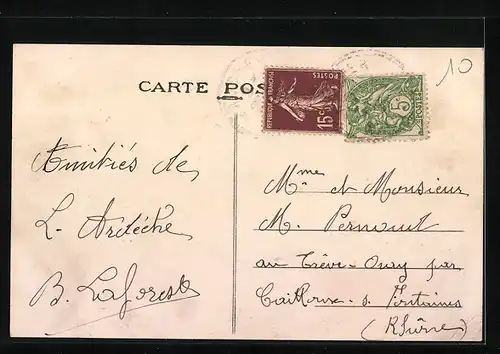 10
CARTE POS
POSTES
REPUBLIQUE FRANÇAISE
15c
5
Amitiés de
L'Ardèche
B. Laforest
Mme et Monsieur
M. Pernout
au Trêve-Oray par
Cailloux-s-Fontaines
(Rhône)